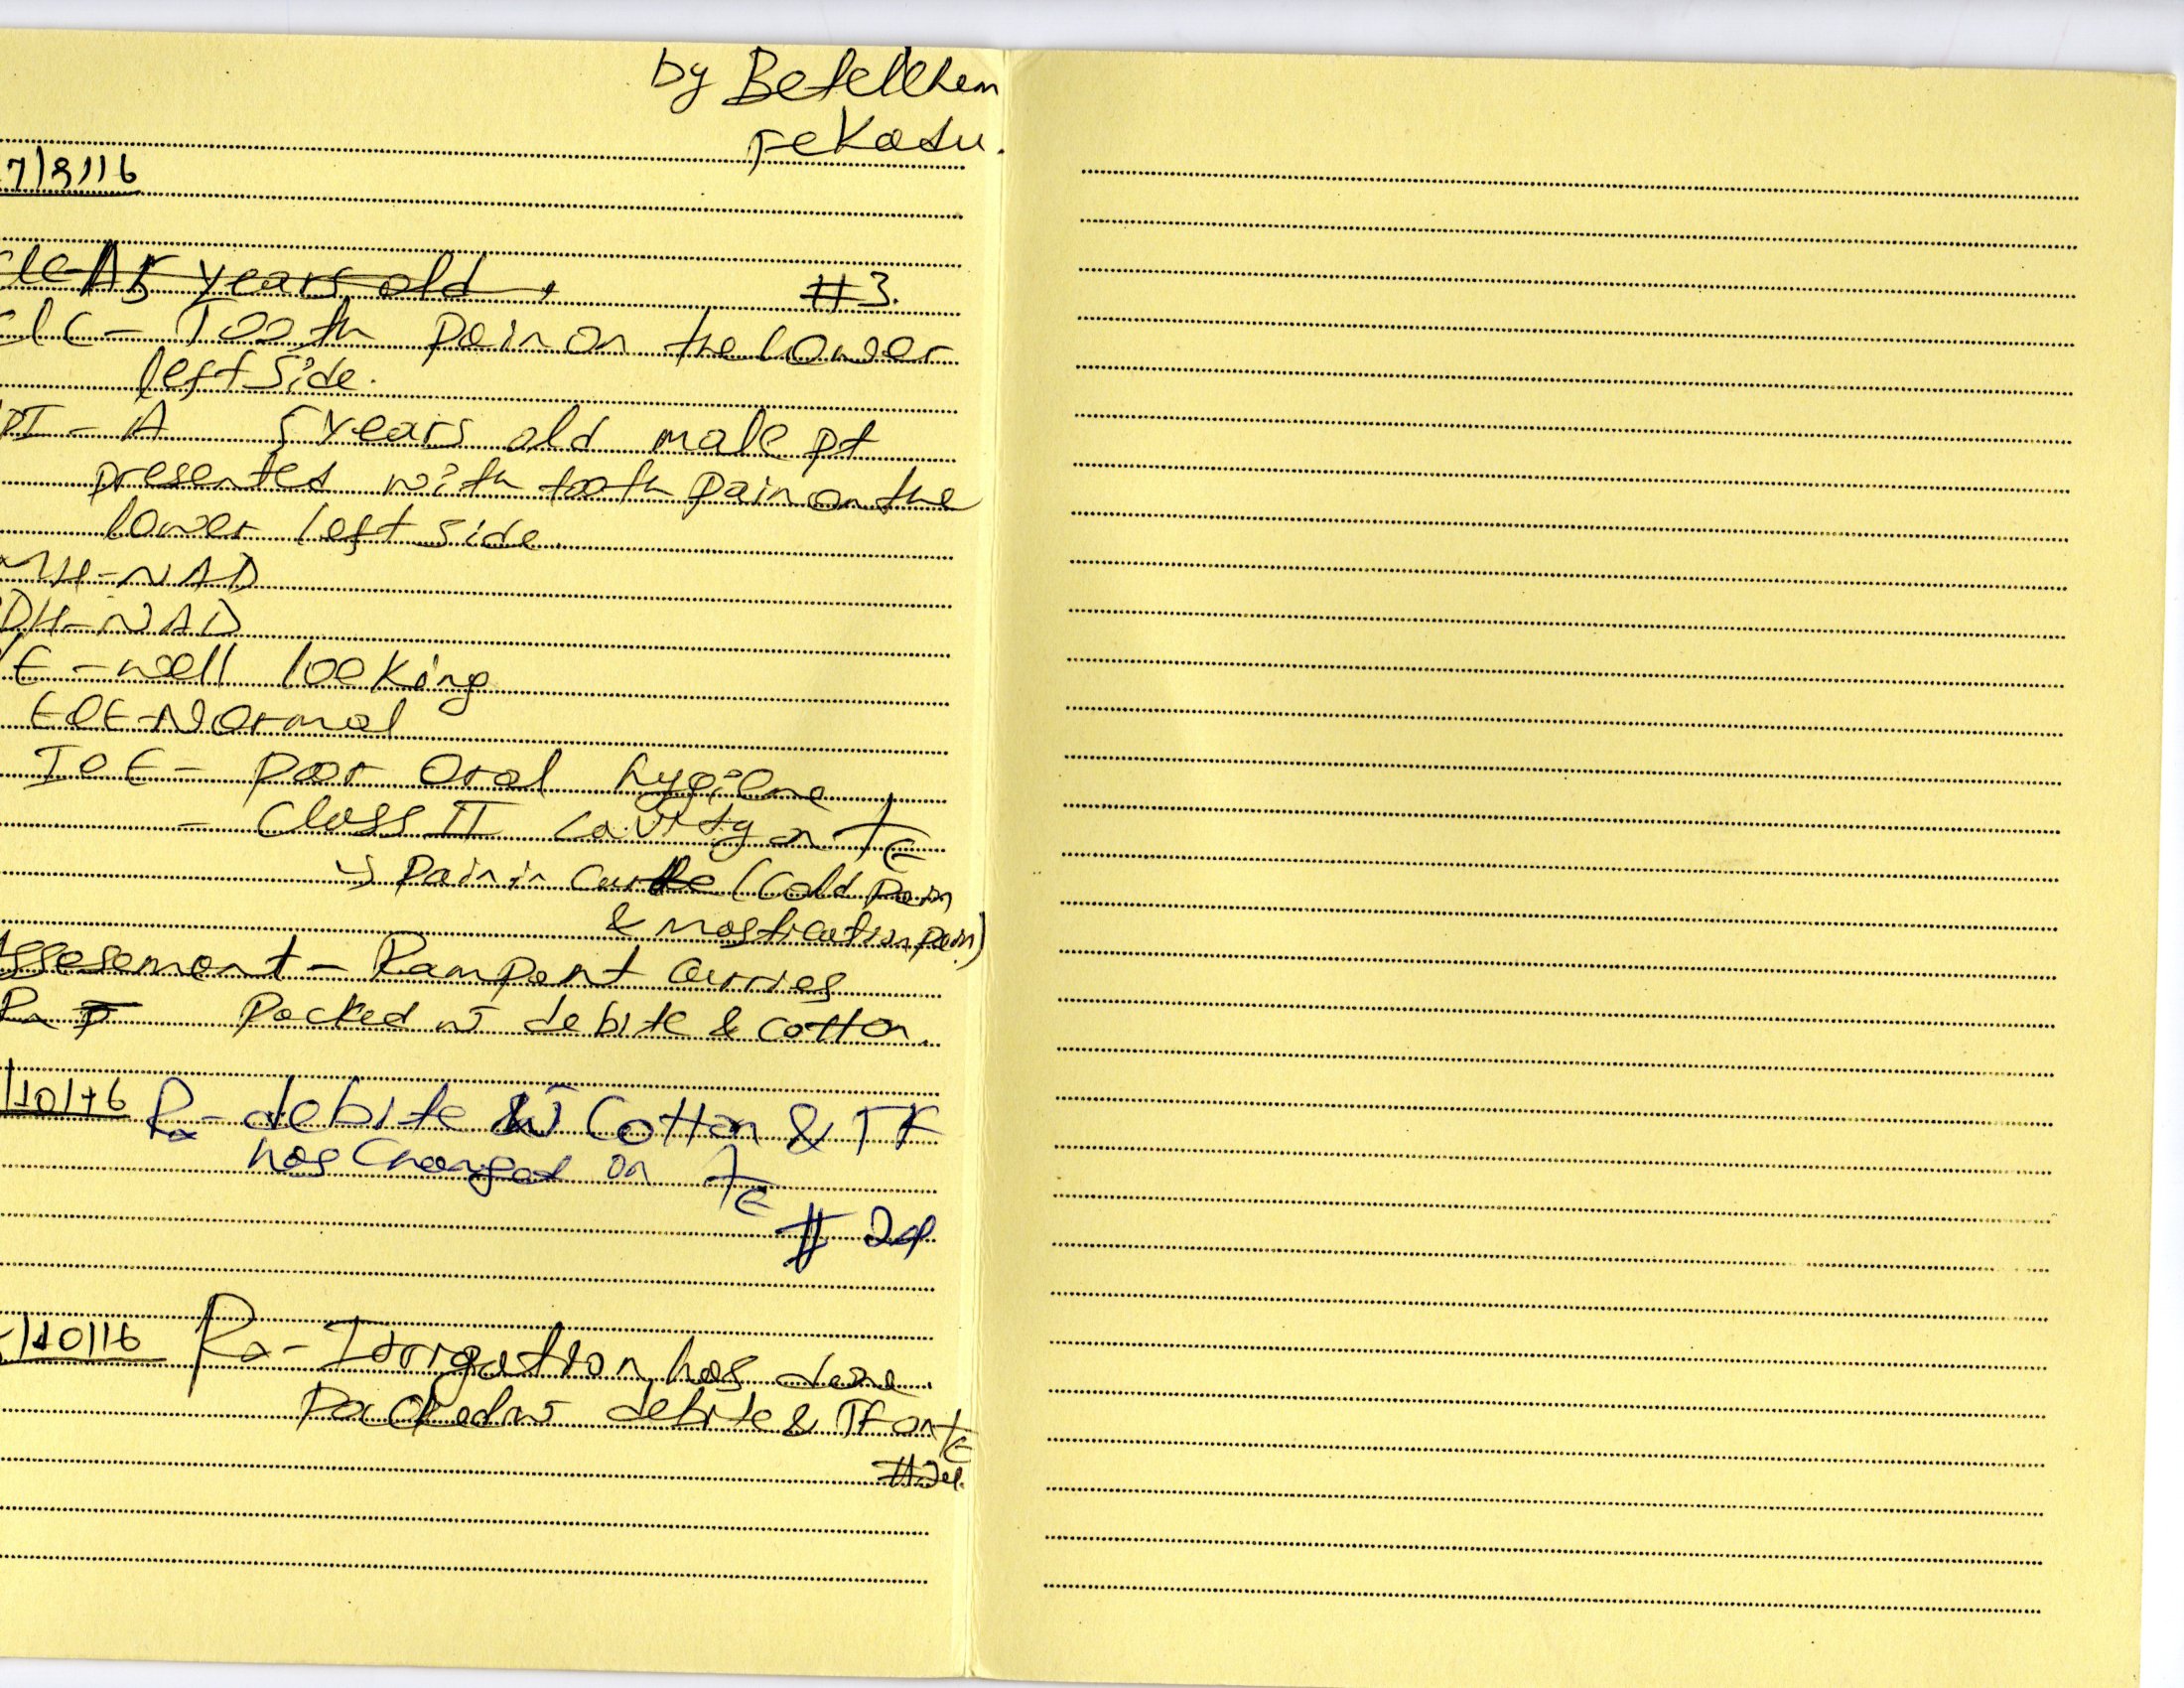 by Betelhem
Fekadu.
7/9/16
A 5 years old,
#3.
C/C - Tooth pain on the lower
left side.
PI - A 5 years old male pt
presented with tooth pain on the
lower left side.
MH-NAD
DH-NAD
/E - well looking
EOE-Normal
IOE - poor oral hygiene
- Class II cavity on E
↳ pain in (cold pain
& mastication pain)
Assesement - Rampant carries
Rx Packed w debite & cotton.
/10/16 Rx - debite w Cotton & TF
has changed on E
# 24
/10/16 Rx - Irrigation has done
Packed w debite & TF on E
#24.